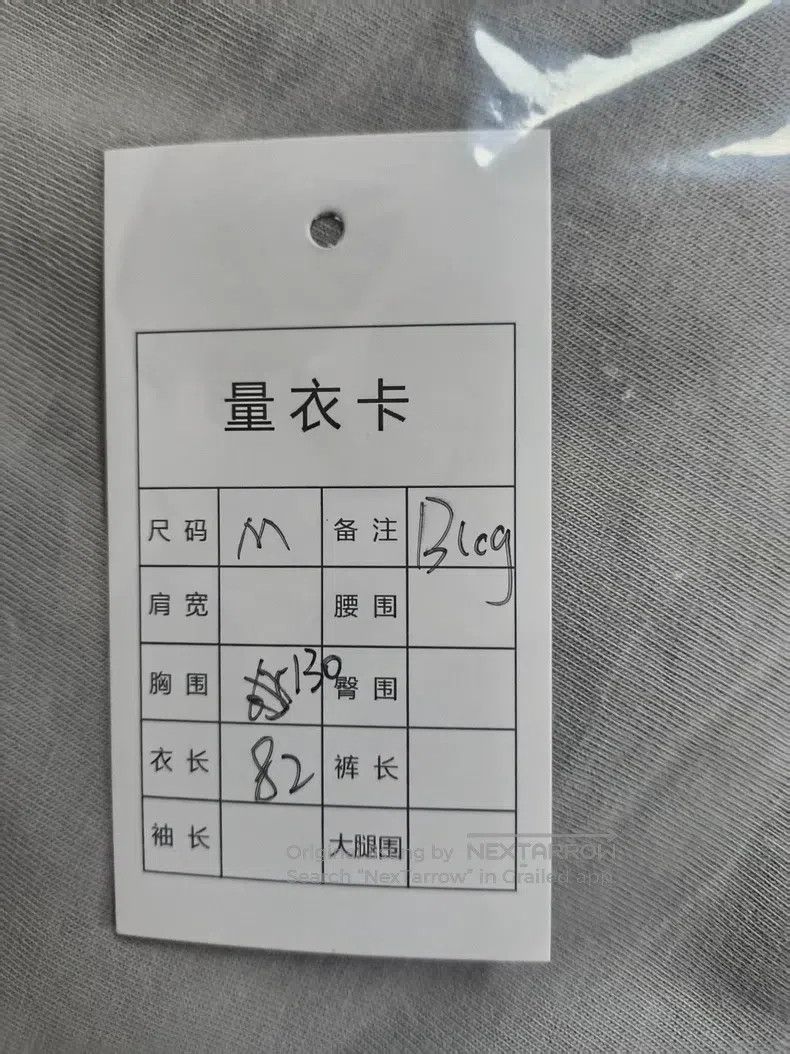 量衣卡
尺码 M 备注 Blcg
肩宽 腰围
胸围 130 臀围
衣长 82 裤长
袖长 大腿围
Original listing by NEXTARROW
Search "NexTarrow" in Grailed app